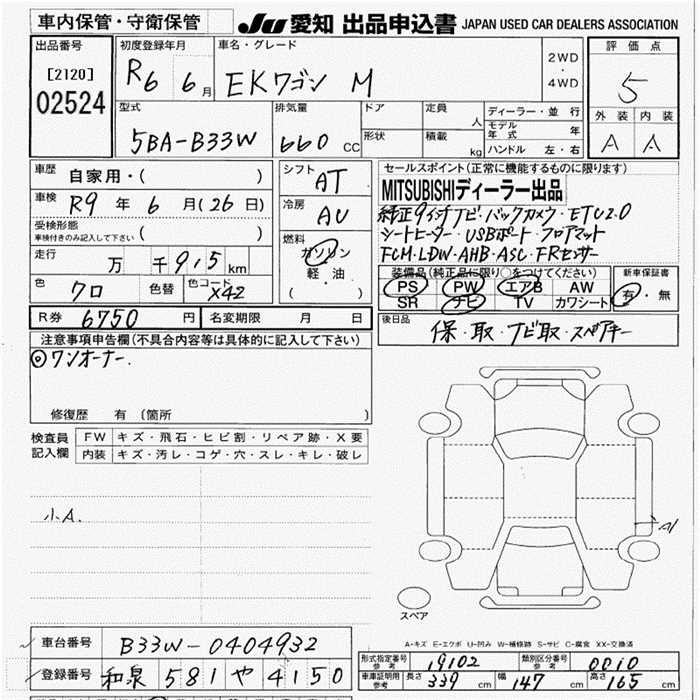 車内保管・守衛保管 JU 愛知 出品申込書 JAPAN USED CAR DEALERS ASSOCIATION
出品番号 初度登録年月 車名・グレード 評価点
[2120] R6 6月 EKワゴン M 2WD・4WD 5
02524
型式 排気量 ドア 定員 人 ディーラー・並行 外装 内装
5BA-B33W 660 CC 形状 積載 kg モデル年式 年 A A
ハンドル 左・右
車歴 自家用・( ) シフト AT セールスポイント(正常に機能するものに限ります)
車検 R9年 6月(26日) 冷房 AU MITSUBISHIディーラー出品
受検形態 純正9インチナビ・バックカメラ・ETC2.0
車検付きのみ記入して下さい ( ) 燃料 ガソリン シートヒーター・USBポート・フロアマット
走行 万 千915km 軽油 FCM・LDW・AHB・ASC・FRセンサー
( ) 装備品(純正品に限り○をつけてください) 新車保証書
色 クロ 色替 色コード X42 PS PW エアB AW 有・無
SR ナビ TV カワシート
R券 6750円 名変期限 月 日 後日品 保・取・ナビ取・スペアキー
注意事項申告欄(不具合内容等は具体的に記入して下さい)
◎ワンオーナー.
修復歴 有 (箇所 )
検査員記入欄 FW キズ・飛石・ヒビ割・リペア跡・X要
内装 キズ・汚レ・コゲ・穴・スレ・キレ・破レ
小A.
A1
スペア
A-キズ E-エクボ U-凹み W-補修跡 S-サビ C-腐食 XX-交換済
車台番号 B33W-0404932
形式指定番号 参考 19102 類別区分番号 参考 0010
登録番号 和泉 581 や 4150
車庫証明用 参考 長さ 339 cm 幅 147 cm 高さ 165 cm